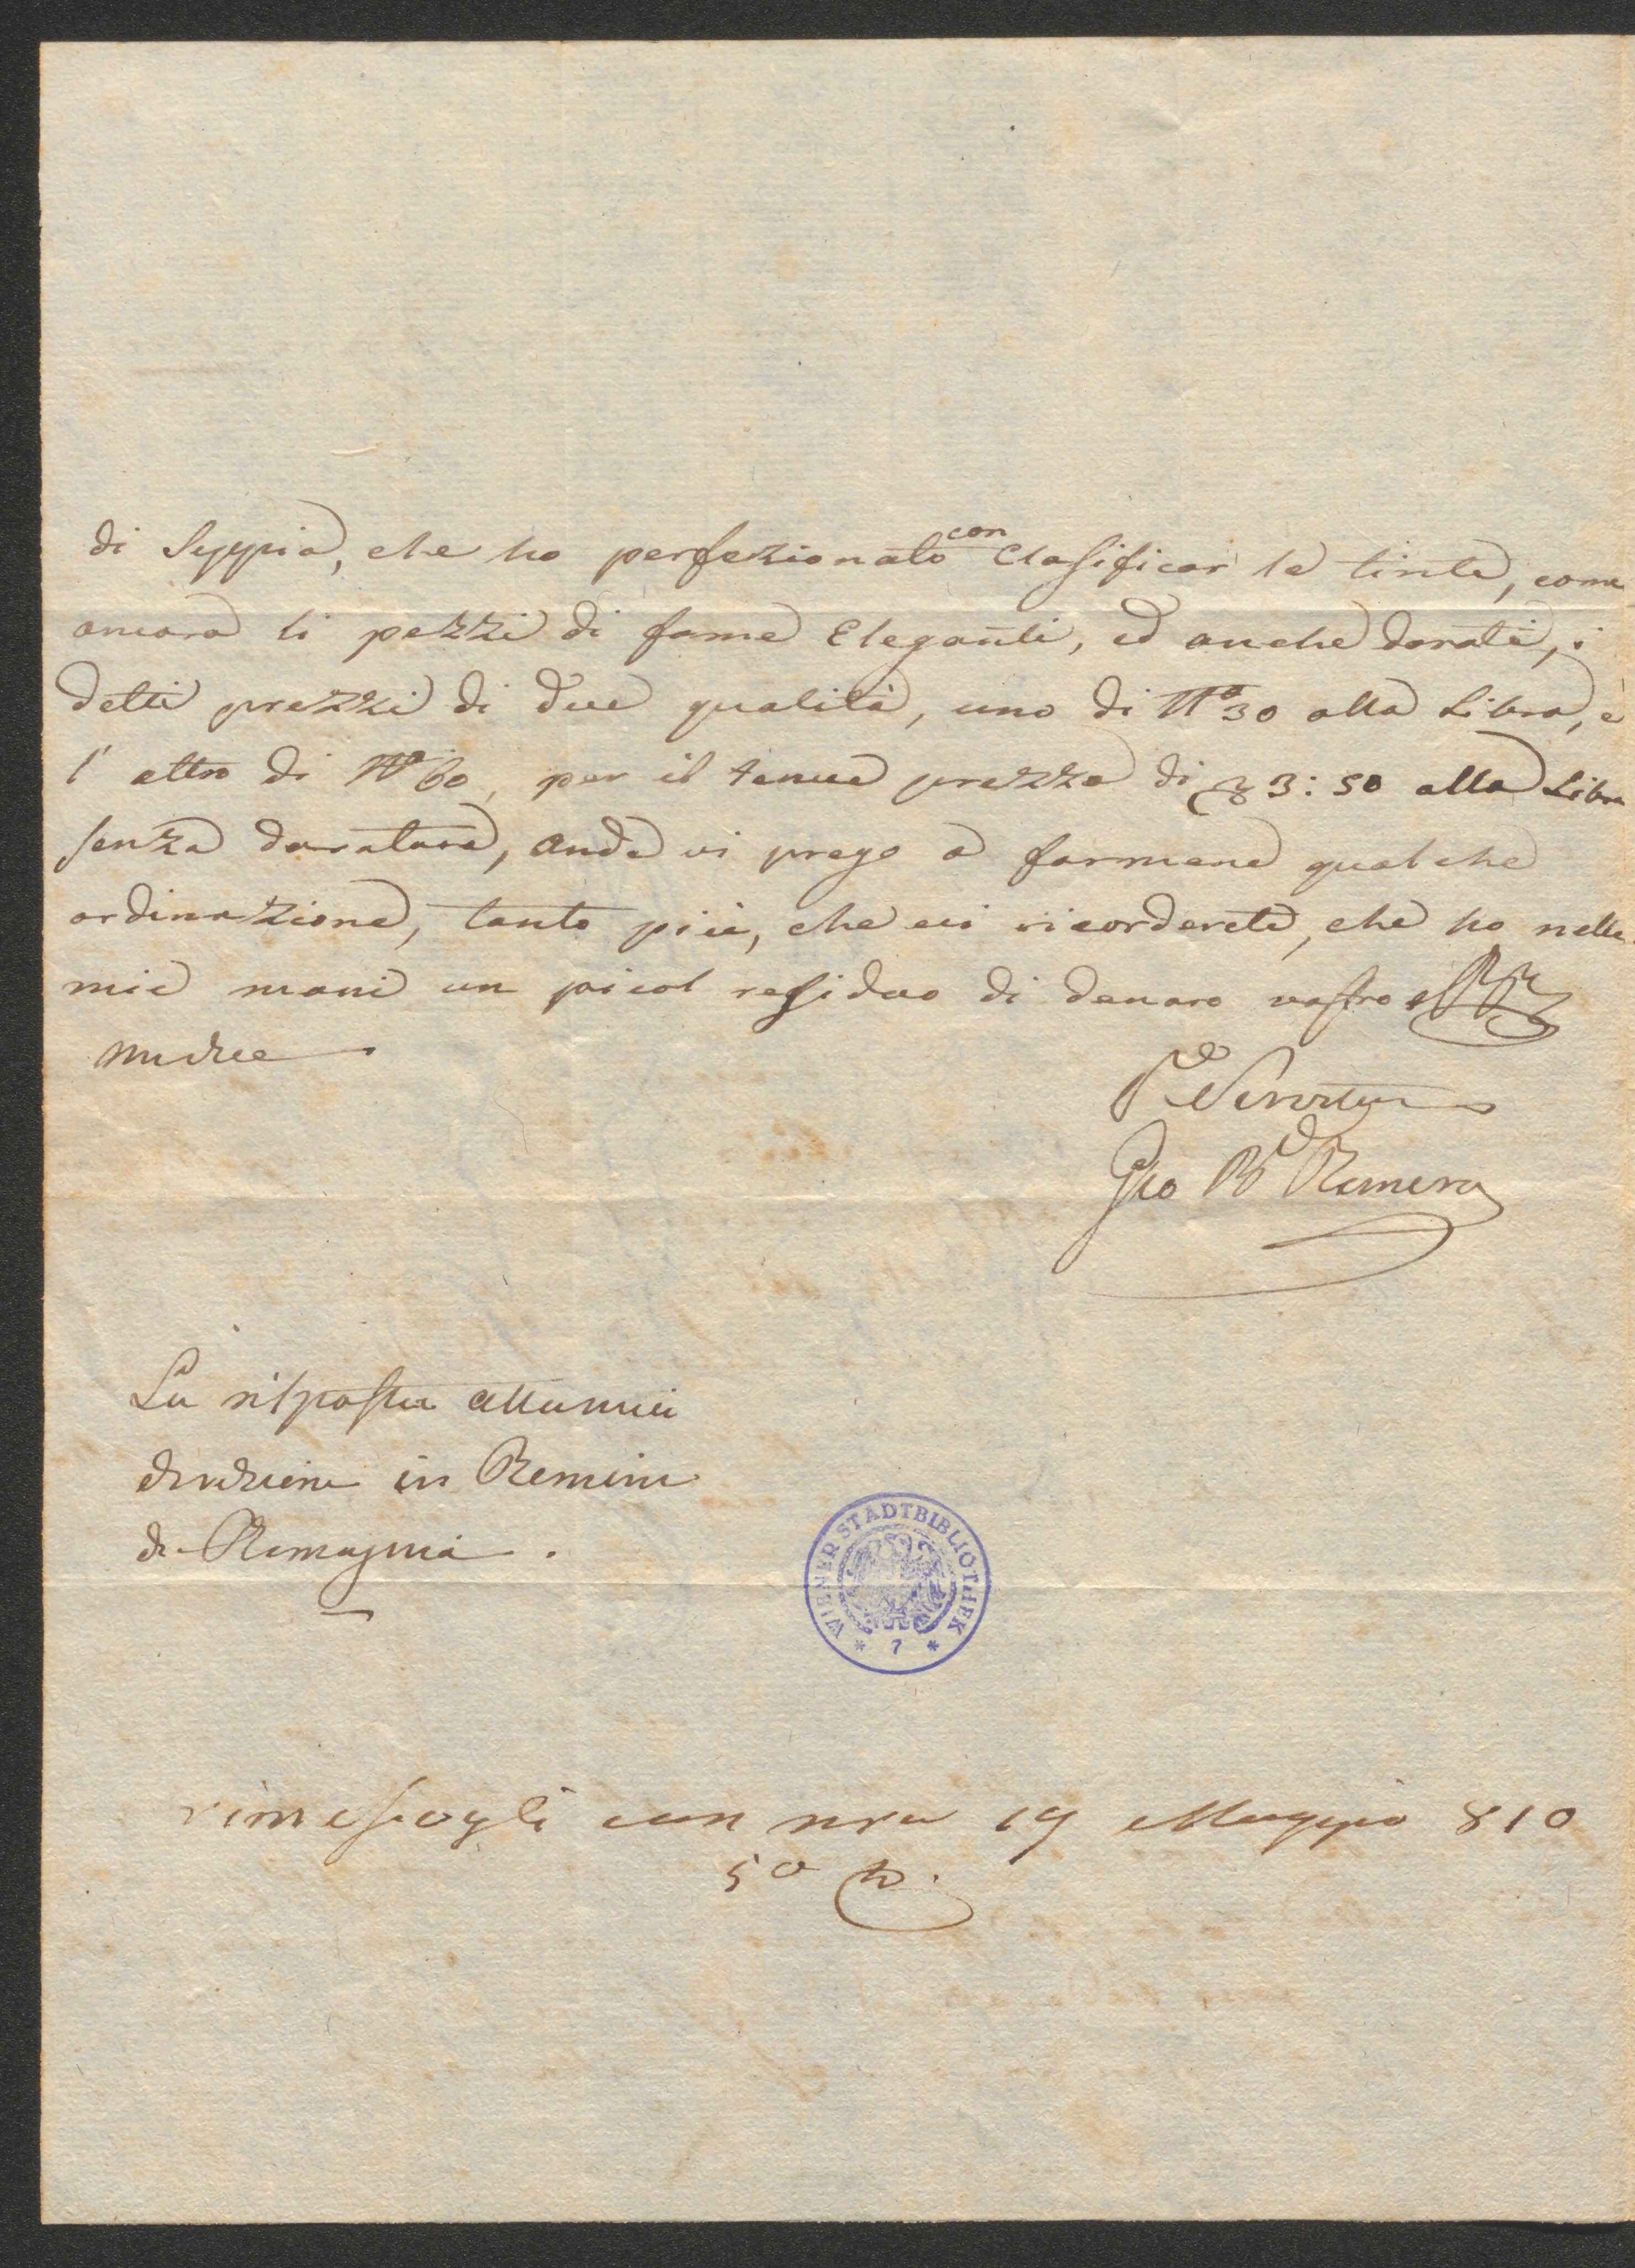 di Seppia, che ho perfezionato con Clasificar le tinte, come
ancora li pezzi di fame Eleganti, ed anche dorati, i
detti prezzi di due qualità, uno di N° 30 alla Libra, è
l'altro di N° 60, per il tenue prezzo di 3:50 alla Libra
senza doratura, onde vi prego a farmene qualche
ordinazione, tanto più, che vi ricorderete, che ho nelle
mie mani un picol residuo di denaro vostro
Gio B
La risposta alla mia
direzione in Remini
di Romagnia.
rimessogli con nra 19 Maggio 810
WIENER STADTBIBLIOTHEK
* 7 *